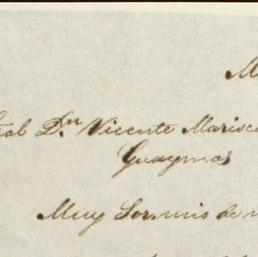 M
ral Dn Vicente Marisca
Guaymas
Muy Sor. mio de m